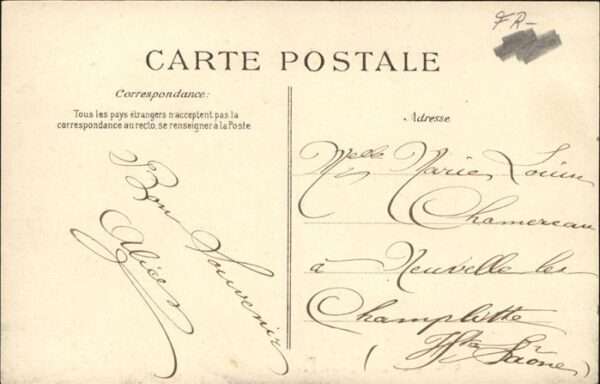 FR-
CARTE POSTALE
Correspondance:
Tous les pays étrangers n'acceptent pas la
correspondance au recto, se renseigner à la Poste
Bon Souvenir
Alice
Adresse
Melle Marie
Chamereau
à Neuvelle les
Champlitte
(Hte Saône)